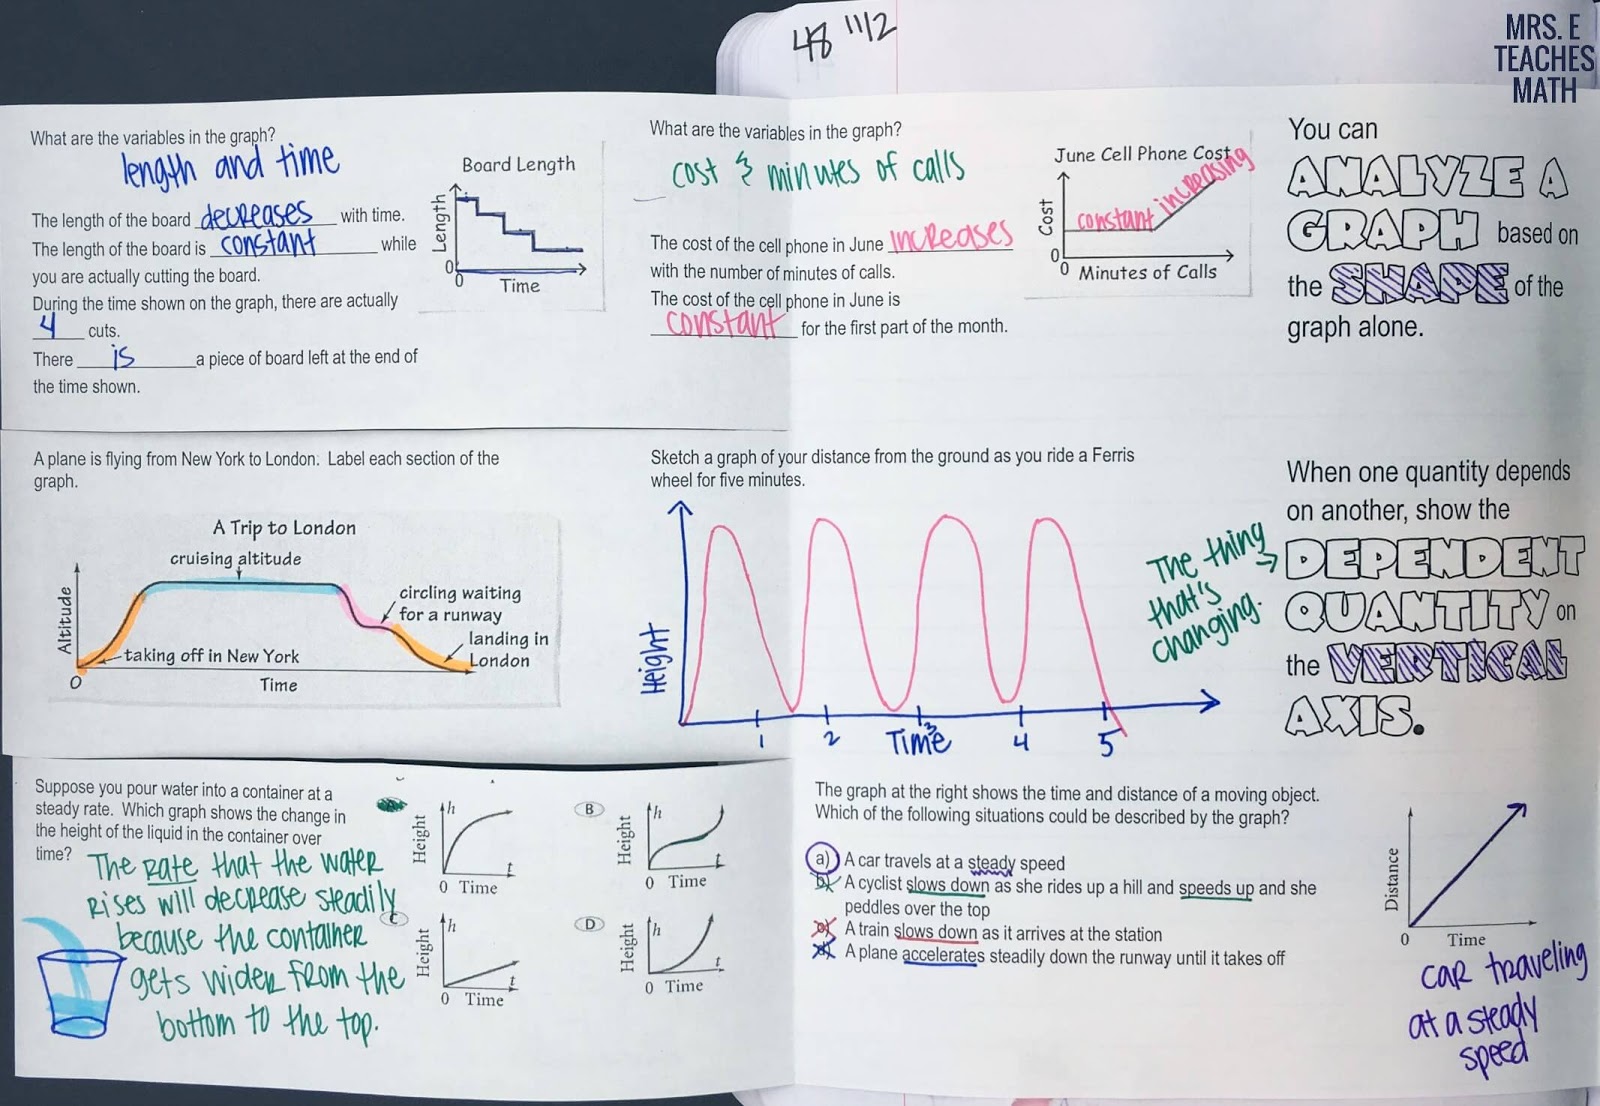 48 11/2
MRS. E
TEACHES
MATH
What are the variables in the graph?
length and time
The length of the board decreases with time.
The length of the board is constant while
you are actually cutting the board.
During the time shown on the graph, there are actually
4 cuts.
There is a piece of board left at the end of
the time shown.
Board Length
Length
0
0
Time
What are the variables in the graph?
cost & minutes of calls
The cost of the cell phone in June increases
with the number of minutes of calls.
The cost of the cell phone in June is
constant for the first part of the month.
June Cell Phone Cost
Cost
constant increasing
0
0 Minutes of Calls
You can
ANALYZE A
GRAPH based on
the SHAPE of the
graph alone.
A plane is flying from New York to London. Label each section of the
graph.
A Trip to London
cruising altitude
Altitude
circling waiting
for a runway
landing in
London
taking off in New York
0
Time
Sketch a graph of your distance from the ground as you ride a Ferris
wheel for five minutes.
Height
1 2 3 4 5
Time
The thing
that's
changing.
When one quantity depends
on another, show the
DEPENDENT
QUANTITY on
the VERTICAL
AXIS.
Suppose you pour water into a container at a
steady rate. Which graph shows the change in
the height of the liquid in the container over
time?
The rate that the water
rises will decrease steadily
because the container
gets wider from the
bottom to the top.
A
Height
h
t
0 Time
B
Height
h
t
0 Time
C
Height
h
t
0 Time
D
Height
h
t
0 Time
The graph at the right shows the time and distance of a moving object.
Which of the following situations could be described by the graph?
a) A car travels at a steady speed
b) A cyclist slows down as she rides up a hill and speeds up and she
peddles over the top
c) A train slows down as it arrives at the station
d) A plane accelerates steadily down the runway until it takes off
Distance
0 Time
car traveling
at a steady
speed